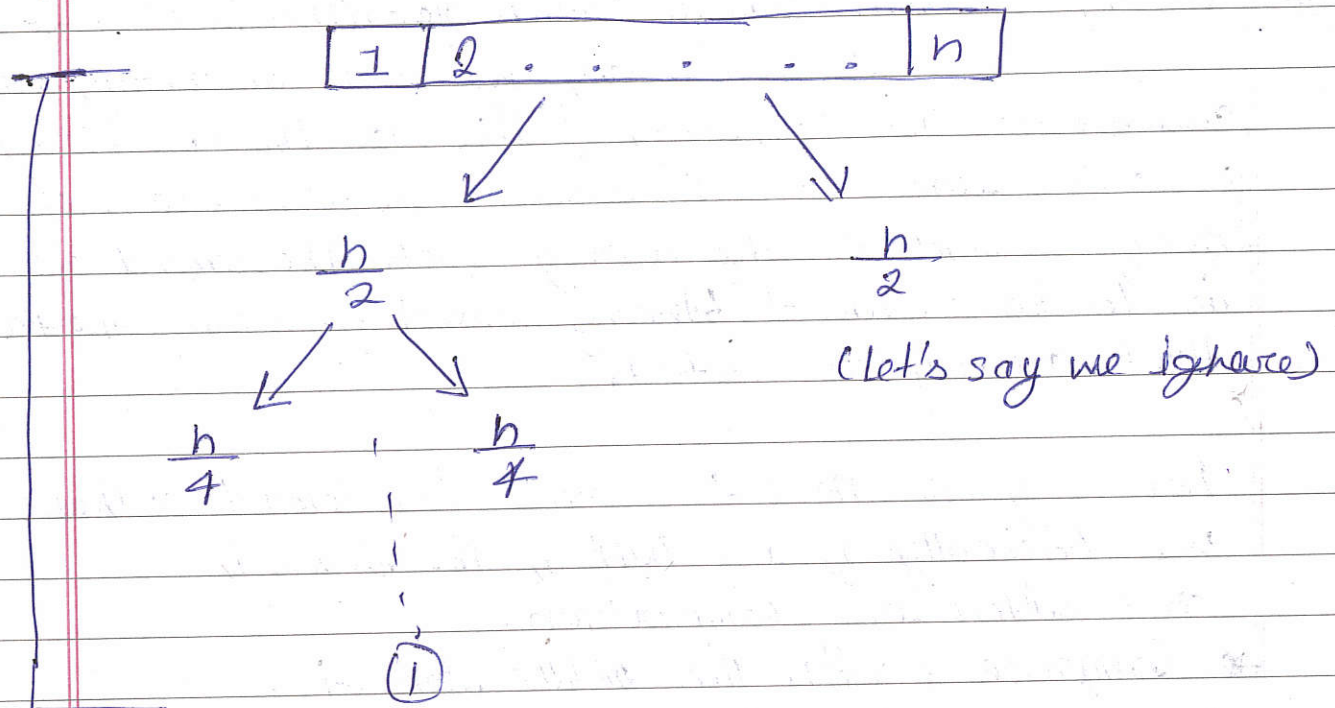 1 2 . . . . . n
n/2 n/2
(let's say we ignore)
n/4 n/4
1